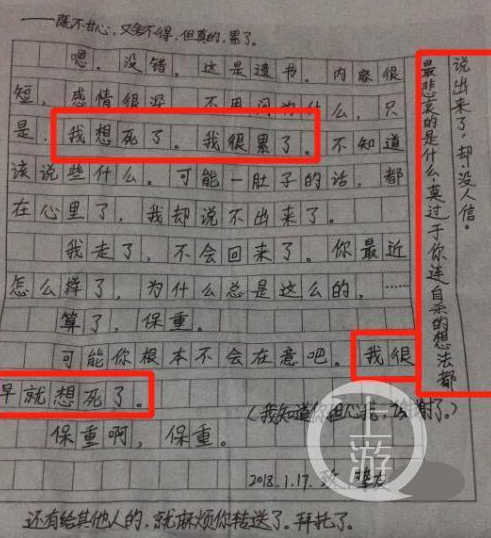 ——既不甘心，又舍不得，但真的，累了。
嗯。没错。这是遗书。内容很
短，感情很深　不用问为什么，只
是，我想死了。我很累了。不知道
该说些什么。可能一肚子的话，都
在心里了，我却说不出来了。
我走了，不会回来了。你最近
怎么择了，为什么总是这么的，……
算了，保重。
可能你根本不会在意吧。我很
早就想死了。
（我知道你担心 谢谢了。）
保重啊，保重。
2018.1.17.
还有给其他人的，就麻烦你转送了。拜托了。
最悲哀的是什么，莫过于你连自杀的想法都
说出来了，却没人信。
上游